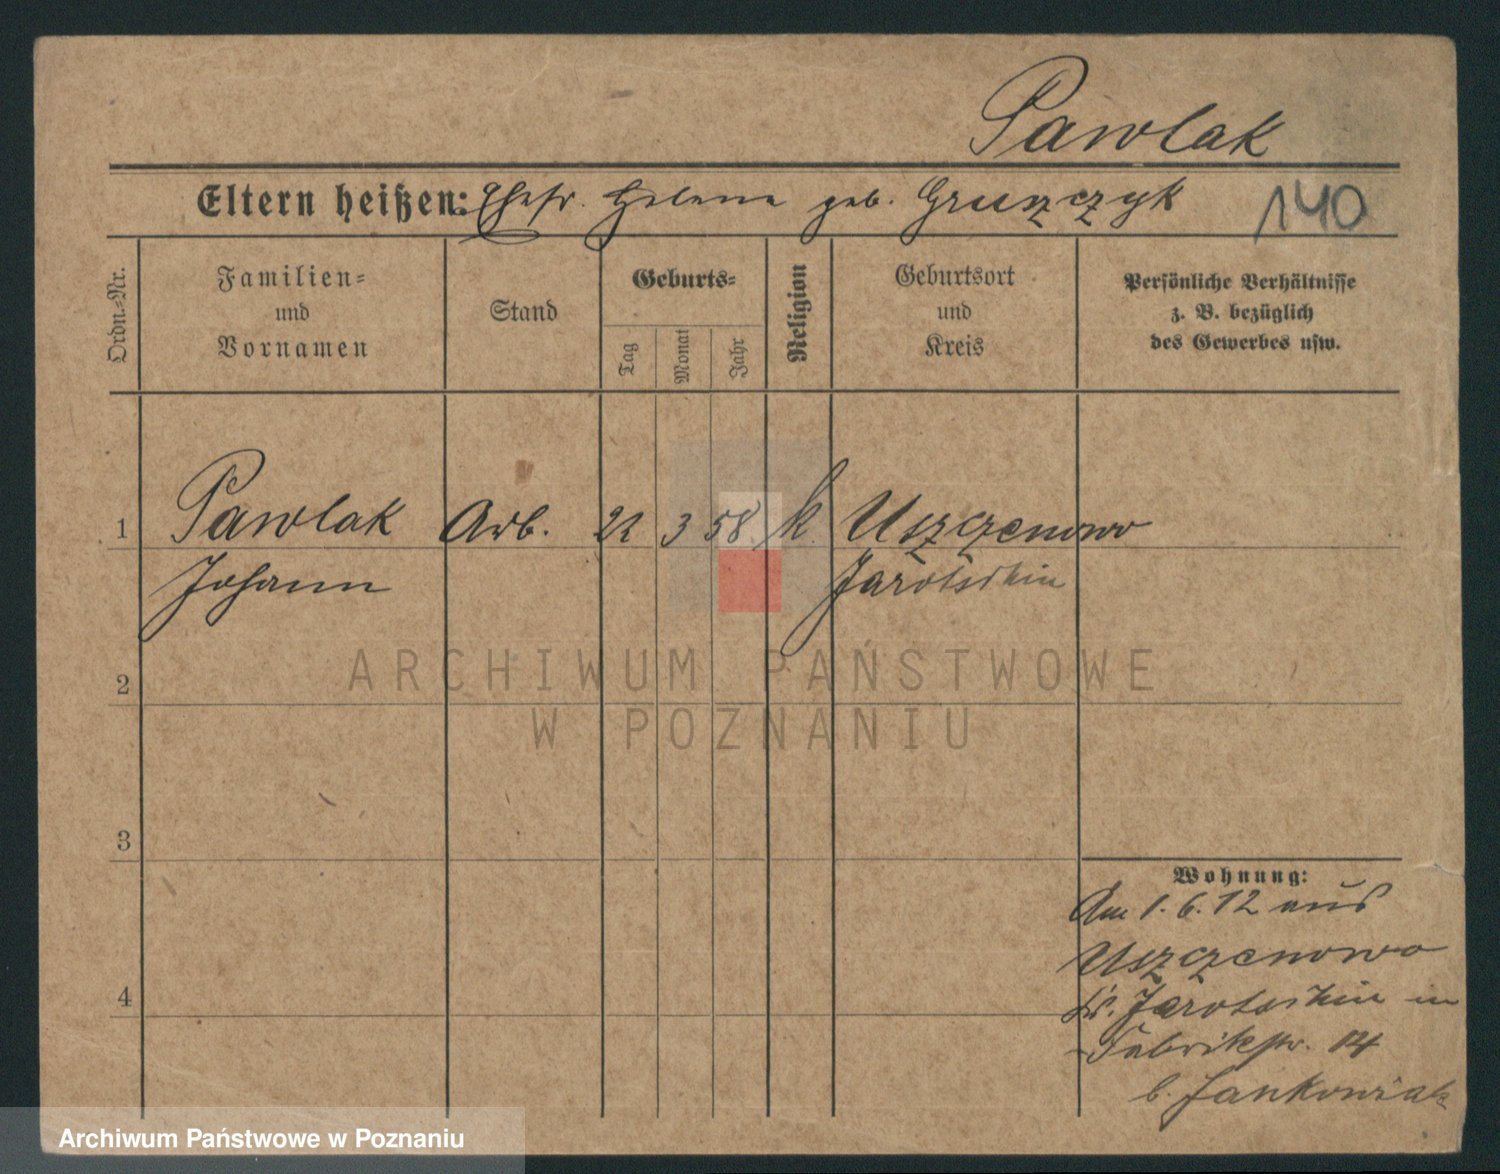 Pawlak
Eltern heißen: Ehefr. Helene geb. Gruszczyk
140
Ordn.-Nr.
Familien-
und
Vornamen
Stand
Geburts-
Tag
Monat
Jahr
Religion
Geburtsort
und
Kreis
Persönliche Verhältnisse
z. B. bezüglich
des Gewerbes usw.
1 Pawlak Arb. 22 3 58. k. Uszczenowo
Johann Jarotschin
ARCHIWUM PAŃSTWOWE
W POZNANIU
2
3
4
Wohnung:
Am 1.6.12 aus
Uszczenowo
Kr. Jarotschin in
Fabrikstr. 14
b. Jankowiak
Archiwum Państwowe w Poznaniu